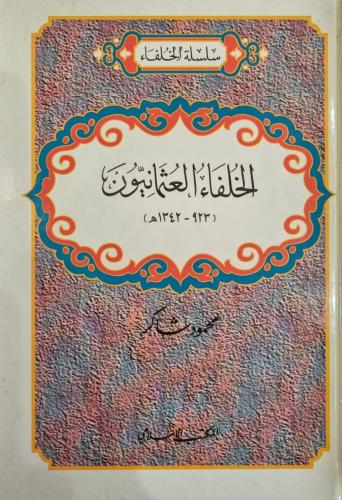 سلسلة الخلفاء
الخلفاء العثمانيّون
(٩٢٣ - ١٣٤٢ هـ)
محمود شاكر
المكتب الإسلامي